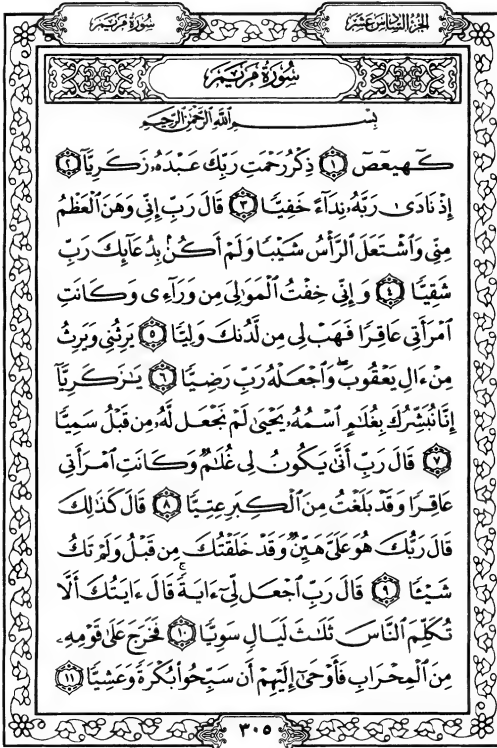 الجزء السادس عشر
سورة مريم
سُورَةُ مَرْيَمَ
بِسْمِ اللَّهِ الرَّحْمَٰنِ الرَّحِيمِ
كٓهيعٓصٓ ١ ذِكْرُ رَحْمَتِ رَبِّكَ عَبْدَهُۥ زَكَرِيَّآ ٢
إِذْ نَادَىٰ رَبَّهُۥ نِدَآءً خَفِيًّا ٣ قَالَ رَبِّ إِنِّى وَهَنَ ٱلْعَظْمُ
مِنِّى وَٱشْتَعَلَ ٱلرَّأْسُ شَيْبًا وَلَمْ أَكُنۢ بِدُعَآئِكَ رَبِّ
شَقِيًّا ٤ وَإِنِّى خِفْتُ ٱلْمَوَٰلِىَ مِن وَرَآءِى وَكَانَتِ
ٱمْرَأَتِى عَاقِرًا فَهَبْ لِى مِن لَّدُنكَ وَلِيًّا ٥ يَرِثُنِى وَيَرِثُ
مِنْ ءَالِ يَعْقُوبَ ۖ وَٱجْعَلْهُ رَبِّ رَضِيًّا ٦ يَٰزَكَرِيَّآ
إِنَّا نُبَشِّرُكَ بِغُلَٰمٍ ٱسْمُهُۥ يَحْيَىٰ لَمْ نَجْعَل لَّهُۥ مِن قَبْلُ سَمِيًّا
٧ قَالَ رَبِّ أَنَّىٰ يَكُونُ لِى غُلَٰمٌ وَكَانَتِ ٱمْرَأَتِى
عَاقِرًا وَقَدْ بَلَغْتُ مِنَ ٱلْكِبَرِ عِتِيًّا ٨ قَالَ كَذَٰلِكَ
قَالَ رَبُّكَ هُوَ عَلَىَّ هَيِّنٌ وَقَدْ خَلَقْتُكَ مِن قَبْلُ وَلَمْ تَكُ
شَيْـًٔا ٩ قَالَ رَبِّ ٱجْعَل لِّىٓ ءَايَةً ۚ قَالَ ءَايَتُكَ أَلَّا
تُكَلِّمَ ٱلنَّاسَ ثَلَٰثَ لَيَالٍ سَوِيًّا ١٠ فَخَرَجَ عَلَىٰ قَوْمِهِۦ
مِنَ ٱلْمِحْرَابِ فَأَوْحَىٰٓ إِلَيْهِمْ أَن سَبِّحُوا۟ بُكْرَةً وَعَشِيًّا ١١
٣٠٥